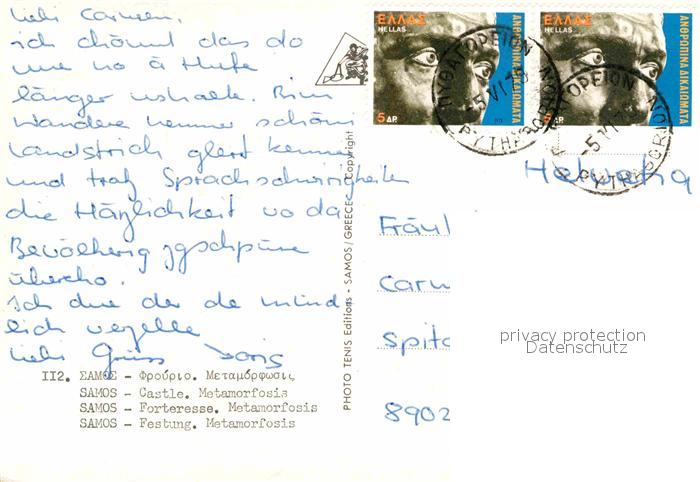 Liebi Carmen,
ich chönnt das do
une no à Hufe
länger ushalte. Bim
Wandere lenne schöni
Landstrich glert kenne
und trotz Sprachschwirigkeiten
die Härzlichkeit vo da
Bevölkerig
übercho.
Ich due der de münd
lich verzelle
Liebi Grüss Doris
ΕΛΛΑΣ
HELLAS
ΑΝΘΡΩΠΙΝΑ ΔΙΚΑΙΩΜΑΤΑ
5 ΔΡ
ΕΛΛΑΣ
HELLAS
ΑΝΘΡΩΠΙΝΑ ΔΙΚΑΙΩΜΑΤΑ
5 ΔΡ
ΠΥΘΑΓΟΡΕΙΟΝ
Helvetia
Fräul
Carm
Spita
8902
PHOTO TENIS Editions - SAMOS/GREECE - Copyright
II2. ΣΑΜΟΣ - Φρούριο. Μεταμόρφωσις
SAMOS - Castle. Metamorfosis
SAMOS - Forteresse. Metamorfosis
SAMOS - Festung. Metamorfosis
privacy protection
Datenschutz